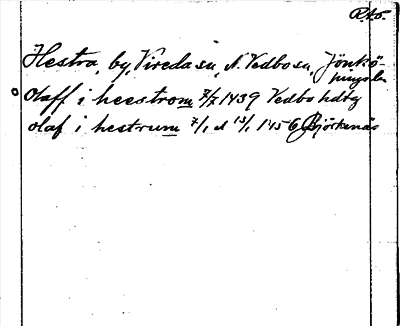 RAö.
Hestra, by, Vireda sn, N. Vedbo sn, Jönkö-
pings län
Olaff i heestrom 7/7 1439 Vedbo hdtg
olaf i hestrum 7/1 el 13/1 1456 Björkenäs